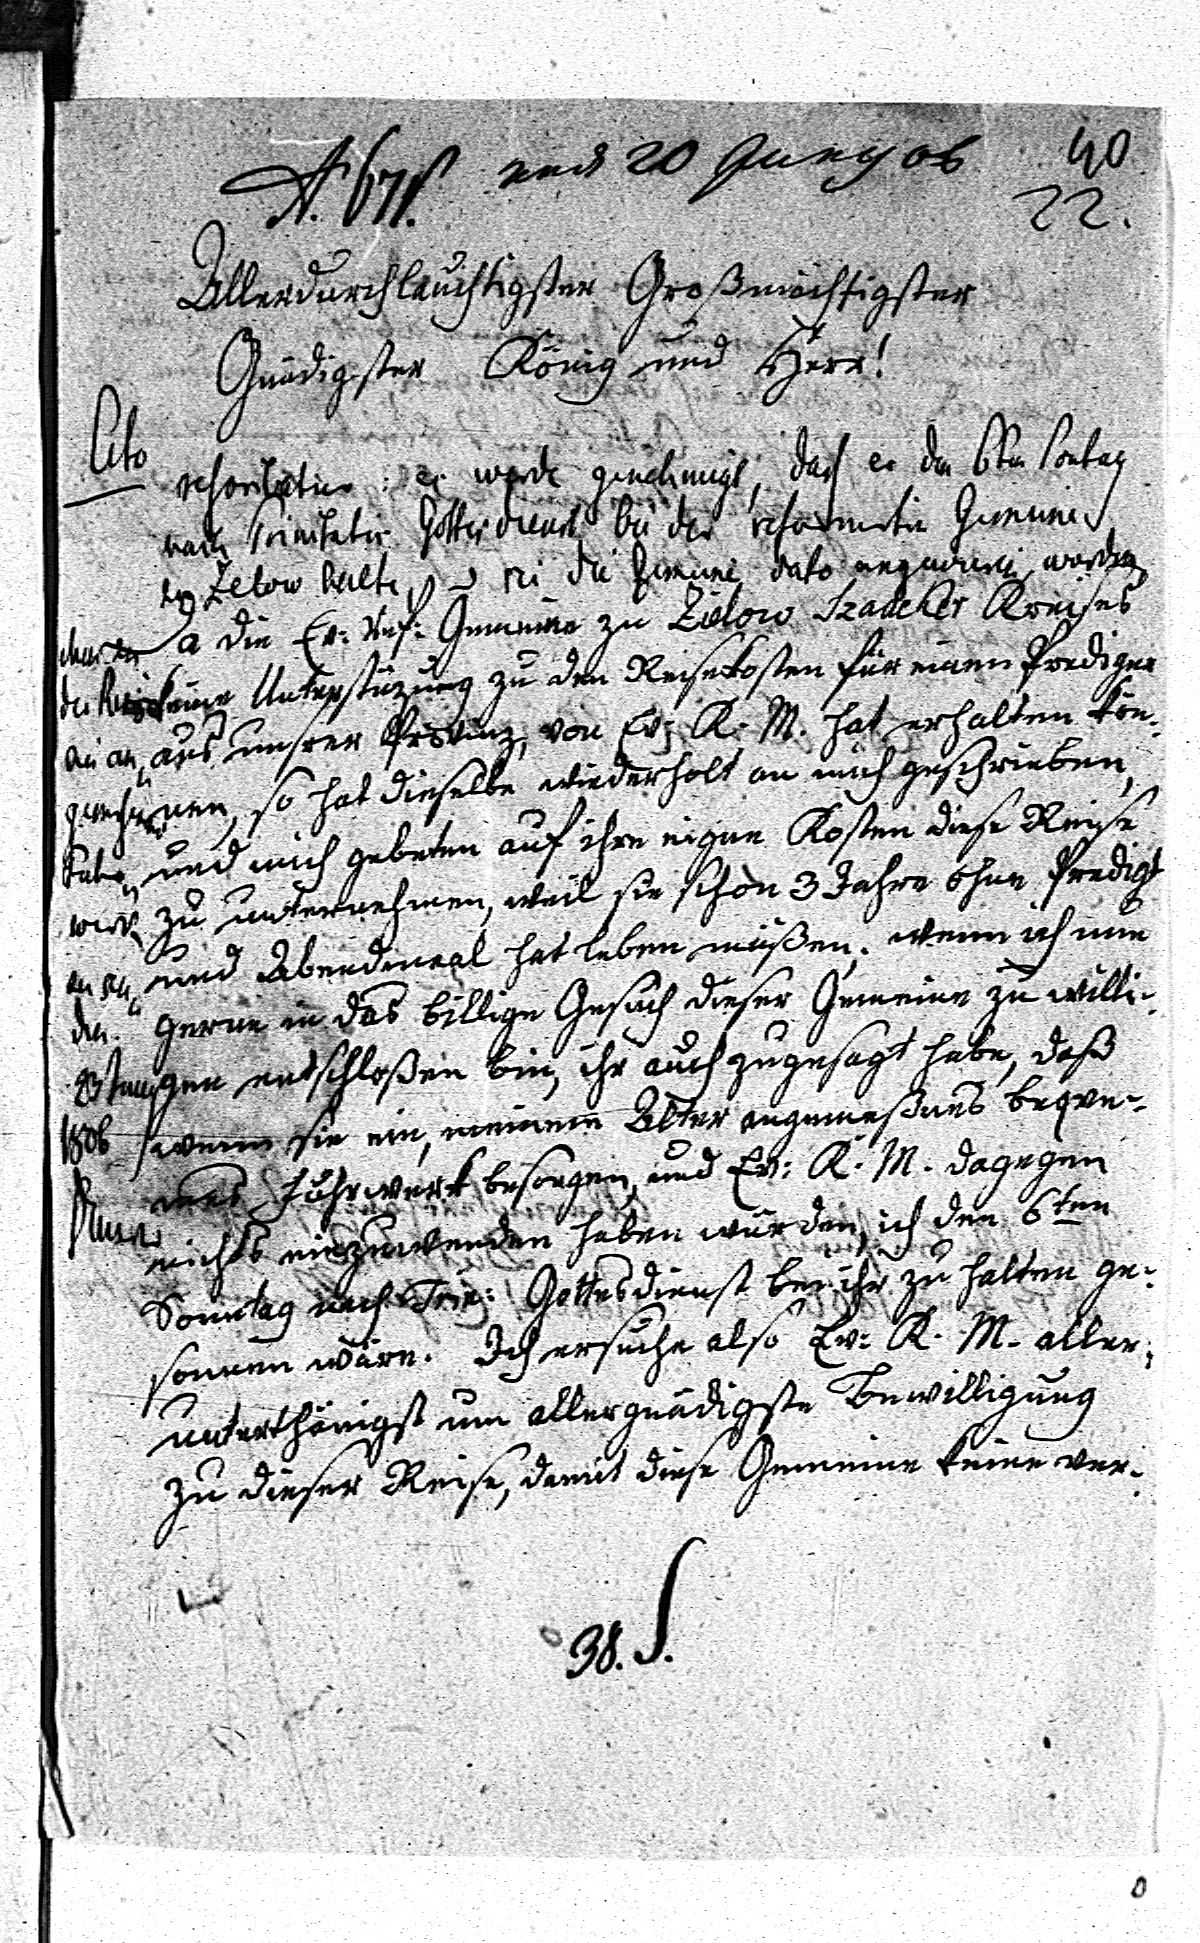 A. 671. 20 Juny 06
40
22.
Allerdurchlauchtigster Großmächtigster
Gnädigster König und Herr!
Cito
: es werde genehmigt, daß er den 6ten Sontag
nach Trinitatis Gottesdienst bei der reformirten Gemeine
Zelow halte, die Gemeine dato worden
Da die Ev: Ref: Gemeine zu Zielow Szadeker Kreises
keine Unterstüzung zu den Reisekosten für einen Prediger
aus unsrer Provinz, von Ew: K. M. hat erhalten kön-
nen, so hat dieselbe wiederholt an mich geschrieben,
und mich gebeten auf ihre eigne Kosten diese Reise
zu unternehmen, weil sie schon 3 Jahre ohne Predigt
und Abendmal hat leben müßen. wenn ich nun
gerne in das billige Gesuch dieser Gemeine zu willi-
gen entschloßen bin, ihr auch zugesagt habe, daß
1806 wenn sie ein, meinem Alter angemeßnes beque-
mes Fuhrwerk besorgen, und Ew: K. M. dagegen
nichts einzuwenden haben würden, ich den 6ten
Sonntag nach Trin: Gottesdienst bei ihr zu halten ge-
sonnen wäre. Ich ersuche also Ew: K. M. aller-
unterthänigst um allergnädigste Bewilligung
zu dieser Reise, damit diese Gemeine keine ver-
38. S.